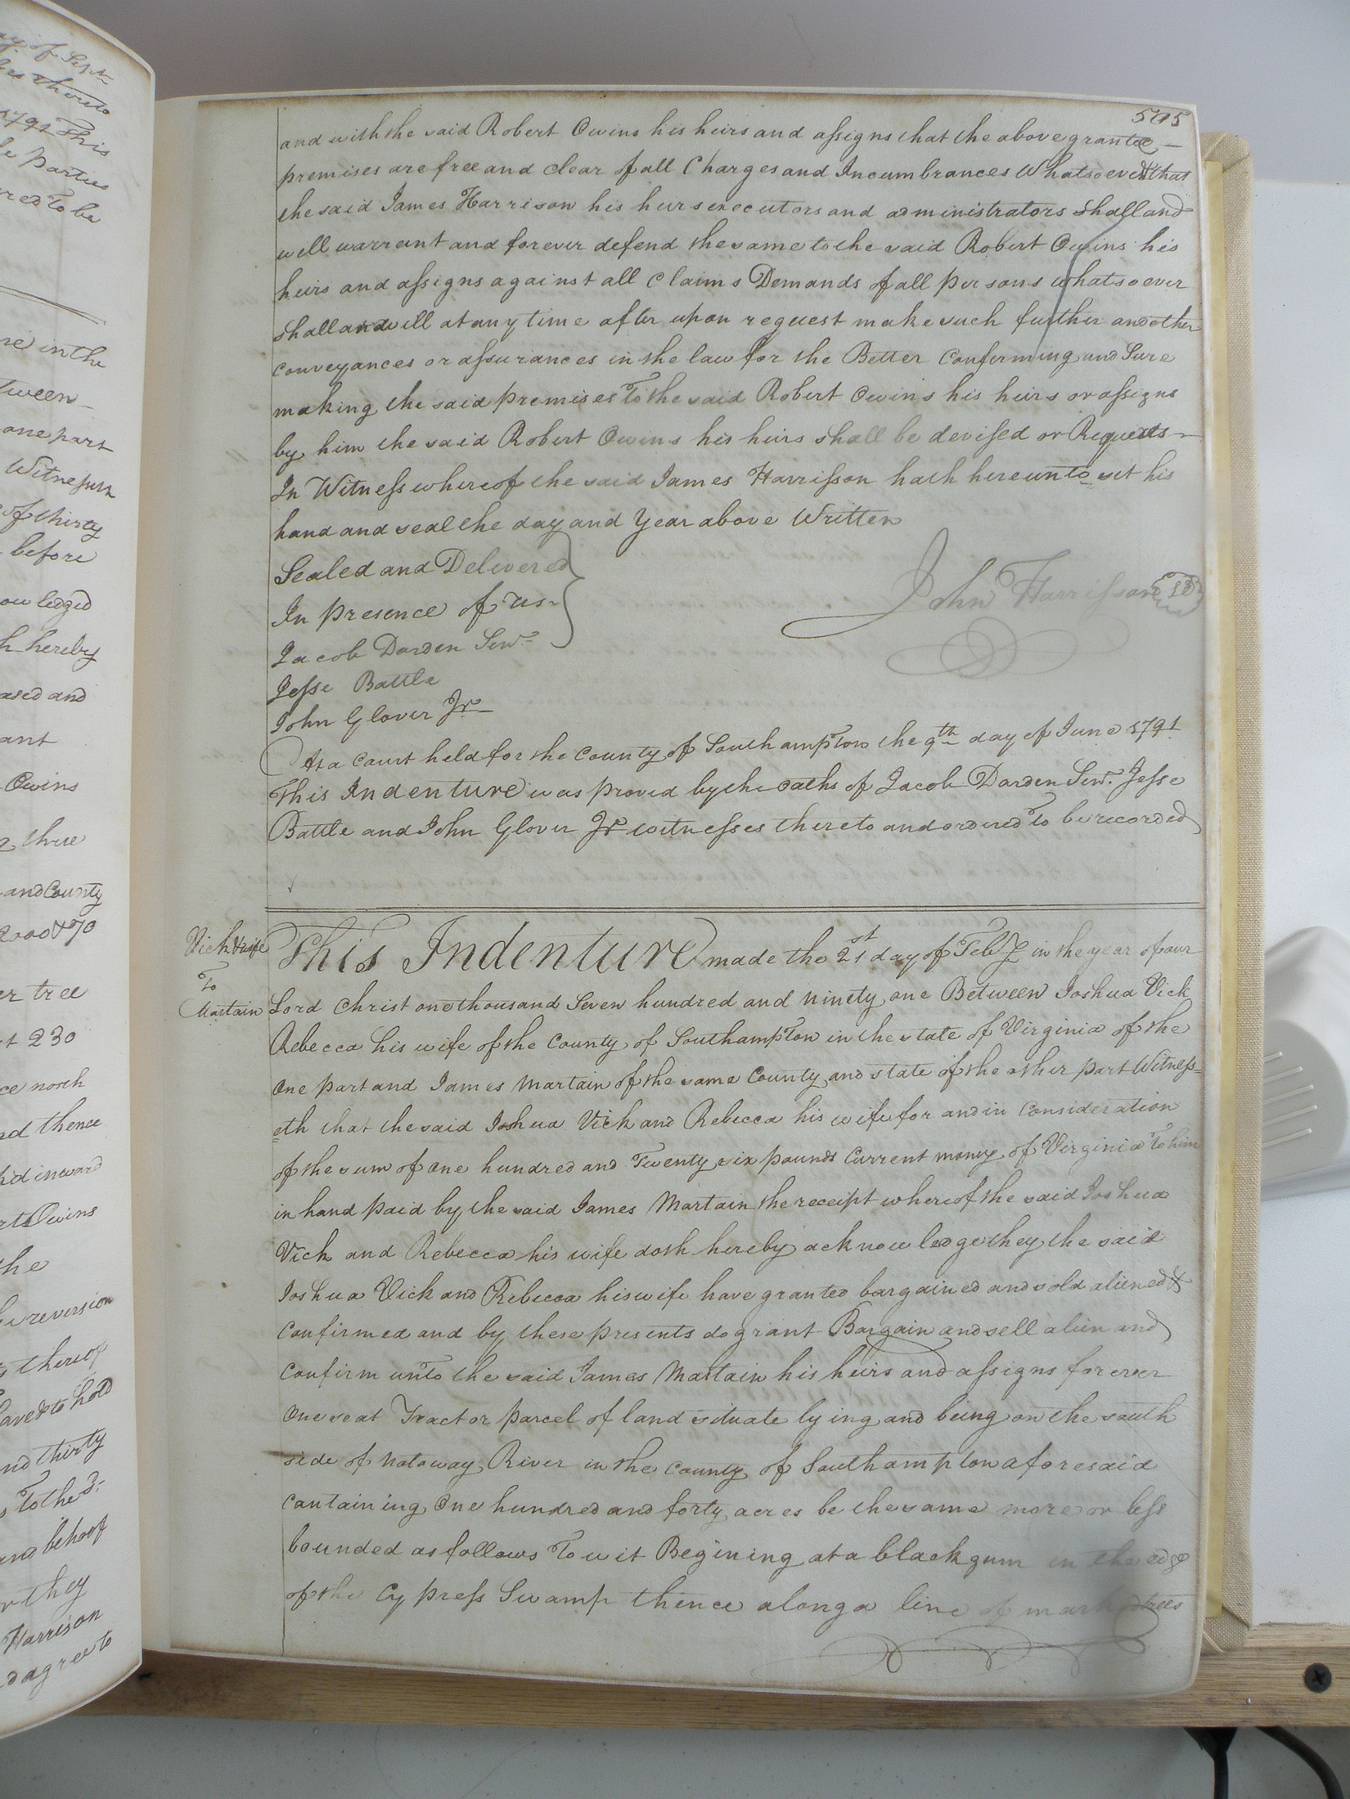 ay of Septr
1791 This
he Parties
red to be
ne in the
tween
one part
Witnesseth
of thirty
before
owledged
h hereby
eased and
ant
Owins
three
and County
er tree
st 230
ce north
nd thence
rt Owins
the
reversion
thereof
have & to hold
and thirty
behoof
or they
Harrison
d agree to
505
and with the said Robert Owins his heirs and assigns that the above granted
premises are free and clear of all Charges and Incumbrances Whatsoever & that
the said James Harrison his heirs executors and administrators shall and
will warrent and forever defend the same to the said Robert Owins his
heirs and assigns against all claims Demands of all persons whatsoever
shall and will at any time after upon request make such further and other
conveyances or assurances in the law for the Better Conforming and Sure
making the said premises To the said Robert Owins his heirs or assigns
by him the said Robert Owins his heirs shall be devised or Requests
In Witness whereof the said James Harrisson hath hereunto set his
hand and seal the day and Year above Written
Sealed and Delivered
In presence of us
John Harrisson
Jacob Darden Senr
Jesse Battle
John Glover Jr
At a Court held for the County of Southampton the 9th day of June 1791
This Indenture was proved by the oaths of Jacob Darden Senr. Jesse
Battle and John Glover Jr witnesses thereto and ordered To be recorded
Vick & wife
To
Martain
This Indenture made the 21st day of Feby in the year of our
Lord Christ one thousand Seven hundred and ninety one Between Joshua Vick
Rebecca his wife of the County of Southampton in the state of Virginia of the
one part and James Martain of the same County and state of the other part Witness=
eth that the said Joshua Vick and Rebecca his wife for and in Consideration
of the sum of one hundred and Twenty six pounds Current money of Virginia To him
in hand paid by the said James Martain the receipt whereof the said Joshua
Vick and Rebecca his wife doth hereby acknowledge they the said
Joshua Vick and Rebecca his wife have granted bargained and sold aliened &
Confirmed and by these presents do grant Bargain and sell alien and
Confirm unto the said James Martain his heirs and assigns forever
one seat Tract or parcel of land situate lying and being on the south
side of Notoway River in the County of Southampton aforesaid
Containing One hundred and forty acres be the same more or less
bounded as follows To wit Begining at a black gum in the edge
of the Cypress Swamp thence along a line of markd trees